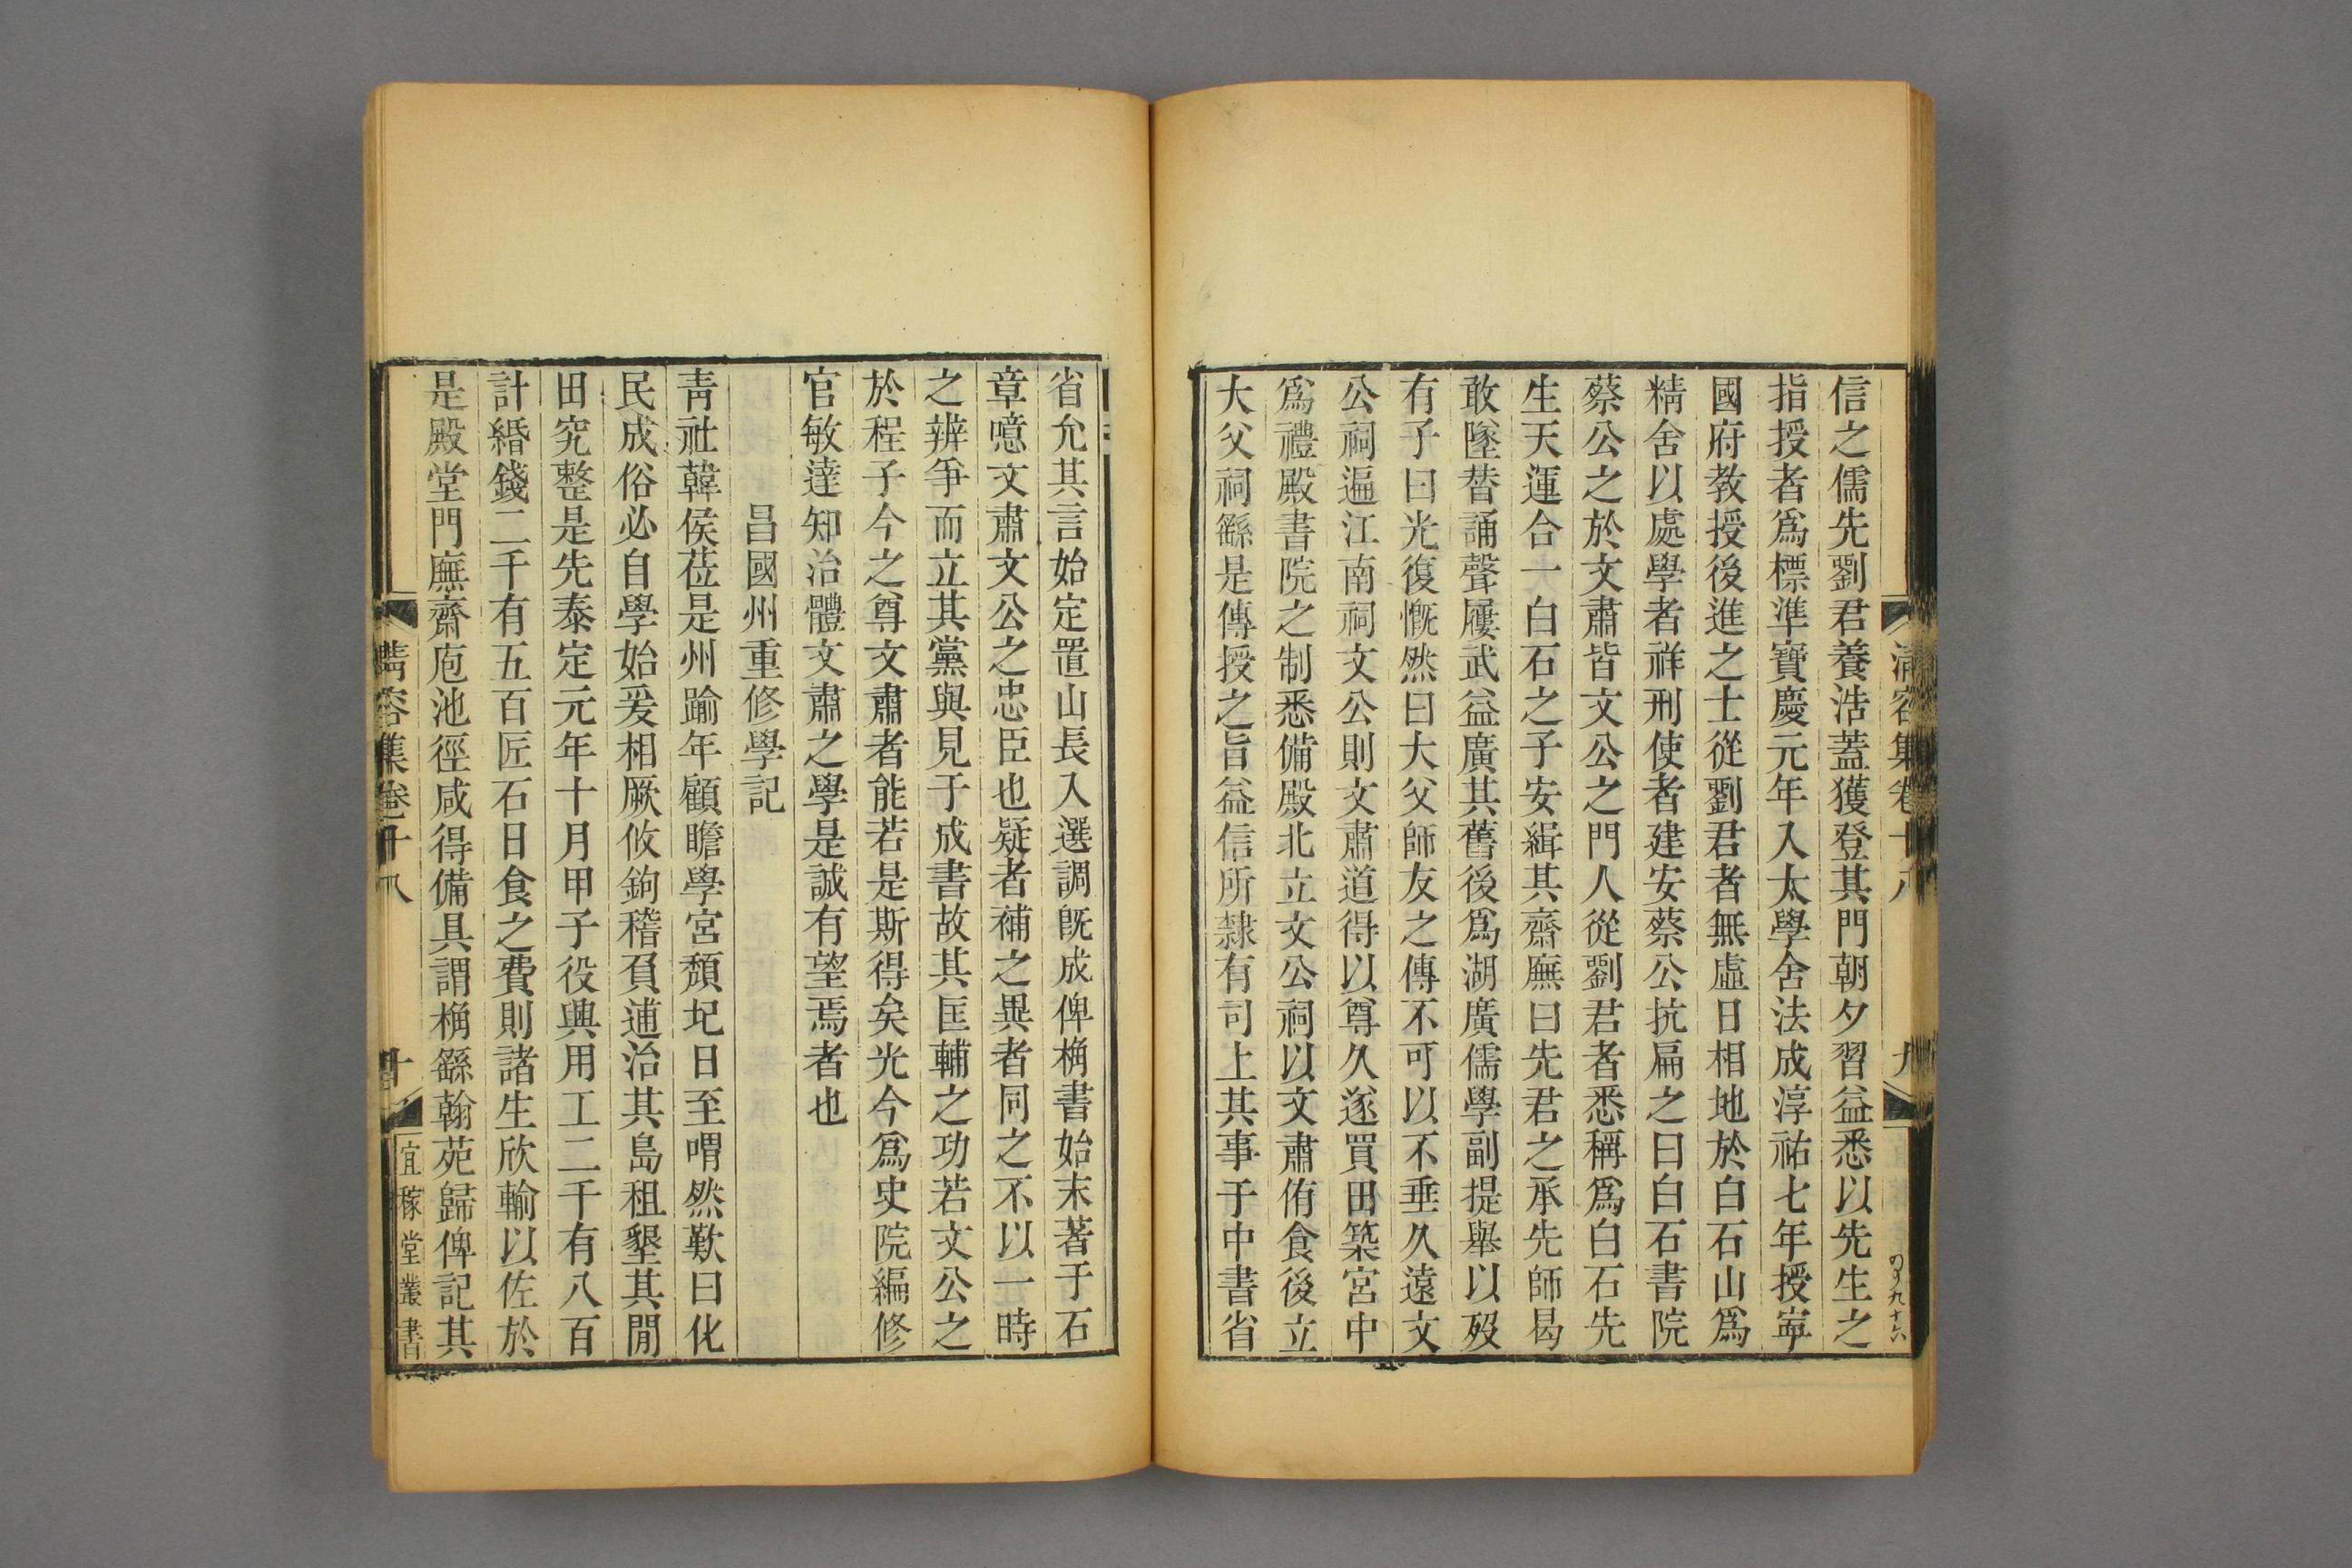 清容集卷十八
九
信之儒先劉君養浩蓋獲登其門朝夕習益悉以先生之
指授者爲標準寶慶元年入太學舍法成淳祐七年授寧
國府教授後進之士從劉君者無虛日相地於白石山爲
精舍以處學者祥刑使者建安蔡公抗扁之曰白石書院
蔡公之於文肅皆文公之門人從劉君者悉稱爲白石先
生天運合一白石之子安緝其齋廡曰先君之承先師曷
敢墜替誦聲屢武益廣其舊後爲湖廣儒學副提舉以歿
有子曰光復慨然曰大父師友之傳不可以不垂久遠文
公祠遍江南祠文公則文肅道得以尊久遂買田築宮中
爲禮殿書院之制悉備殿北立文公祠以文肅侑食後立
大父祠繇是傳授之旨益信所隸有司上其事于中書省
省允其言始定置山長入選調旣成俾桷書始末著于石
章噫文肅文公之忠臣也疑者補之異者同之不以一時
之辨爭而立其黨與見于成書故其匡輔之功若文公之
於程子今之尊文肅者能若是斯得矣光今爲史院編修
官敏達知治體文肅之學是誠有望焉者也
昌國州重修學記
靑社韓侯莅是州踰年顧瞻學宮頹圮日至喟然歎曰化
民成俗必自學始爰相厥攸鉤稽負逋治其島租墾其閒
田究整是先泰定元年十月甲子役興用工二千有八百
計緡錢二千有五百匠石日食之費則諸生欣輸以佐於
是殿堂門廡齋庖池徑咸得備具謂桷繇翰苑歸俾記其
清容集卷十八
十
宜稼堂叢書